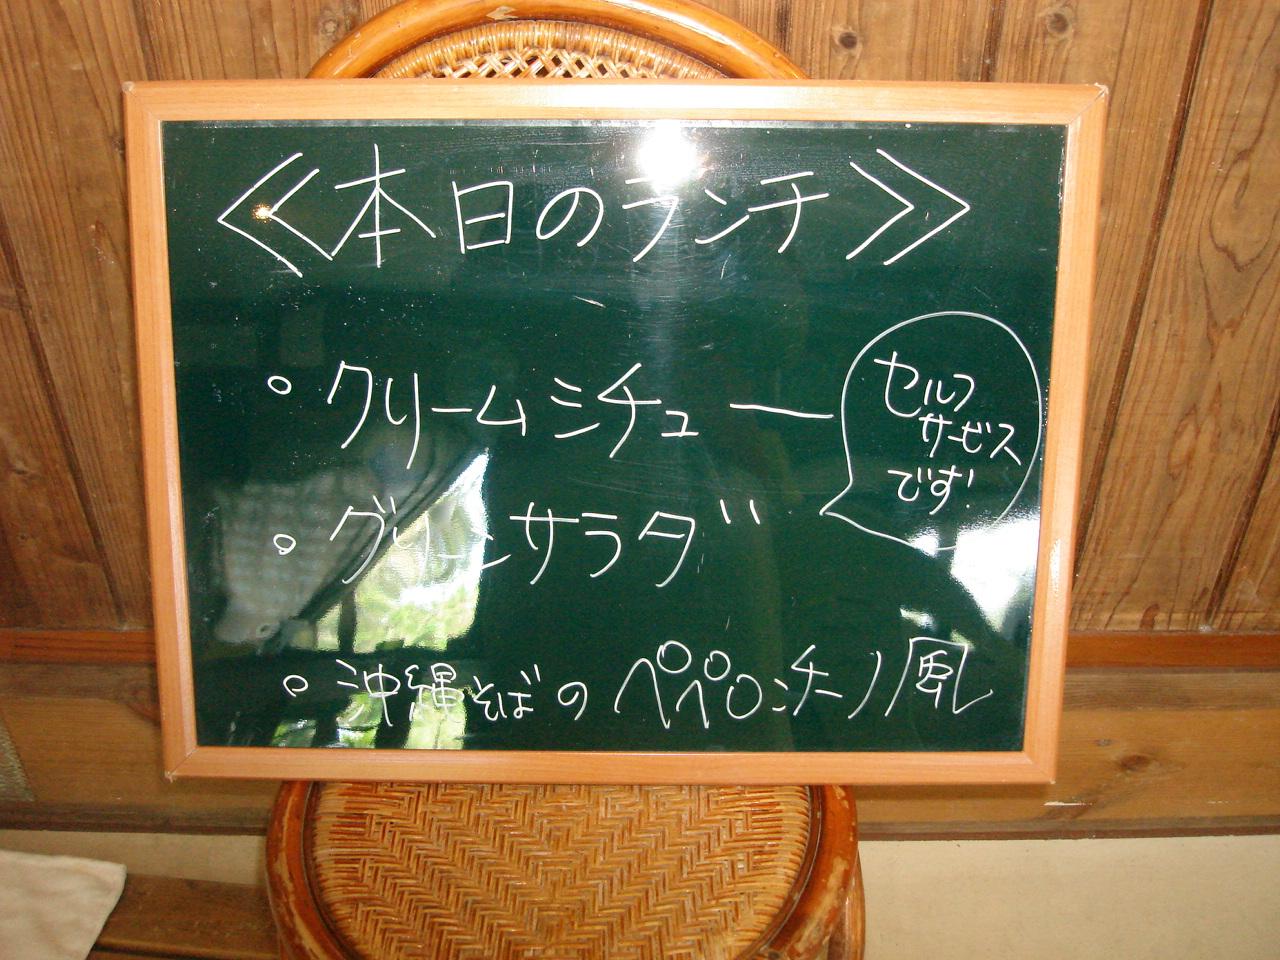 ≪本日のランチ≫
。クリームシチュー
セルフ
サービス
です!
。グリーンサラダ
。沖縄そばのペペロンチーノ風